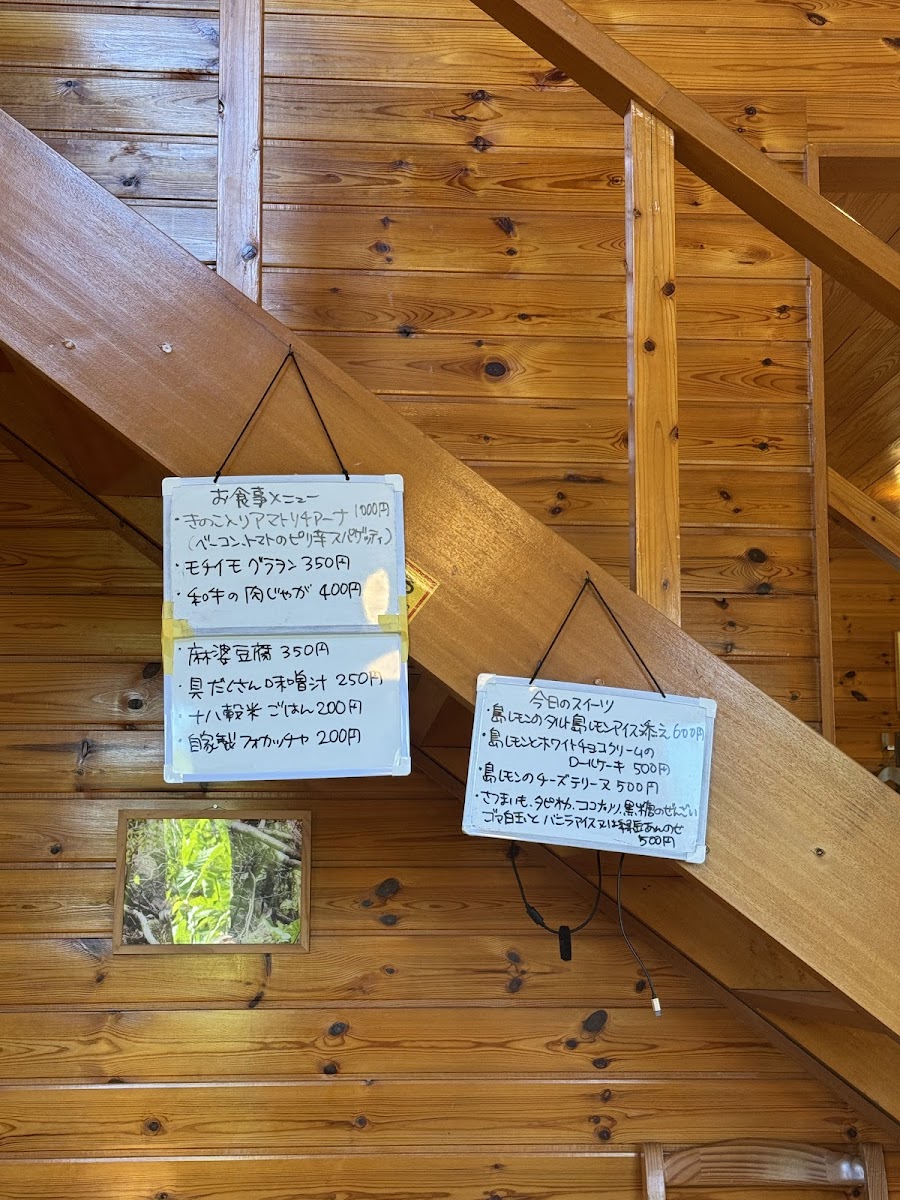 お食事メニュー
・きのこ入りアマトリチアーナ 1000円
(ベーコン、トマトのピリ辛スパゲッティ)
・モチイモグラタン 350円
・和牛の肉じゃが 400円
・麻婆豆腐 350円
・具だくさん味噌汁 250円
・十八穀米ごはん 200円
・自家製フォカッチャ 200円
今日のスイーツ
・島レモンのタルト島レモンアイス添え 600円
・島レモンとホワイトチョコクリームの
ロールケーキ 500円
・島レモンのチーズテリーヌ 500円
・さつまいも、タピオカ、ココナッツ、黒糖のぜんざい
ゴマ白玉と バニラアイス又は あんのせ
500円